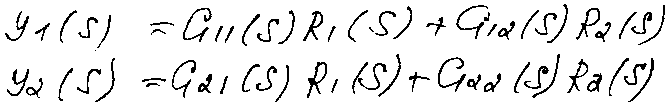 y1(s) = G11(s) R1(s) + G12(s) R2(s)
y2(s) = G21(s) R1(s) + G22(s) R2(s)